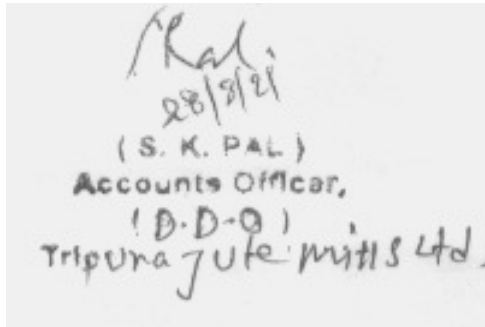 SKPal.
28/8/21
( S. K. PAL )
Accounts Officar,
( D.D.O )
Tripura Jute Mills Ltd.